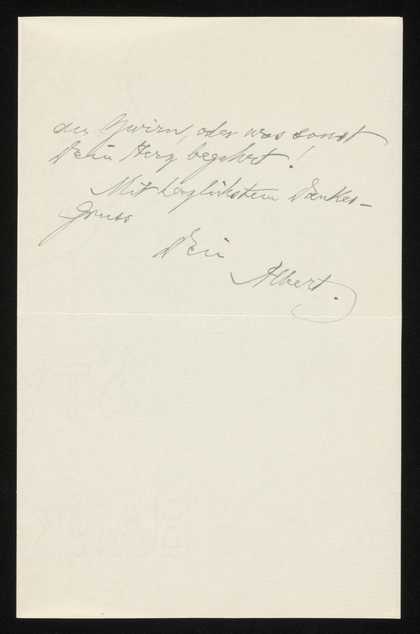 der Zwirn, oder was sonst
Dein Herz begehrt!
Mit herzlichstem Dankes-
gruss
Dein
Albert.